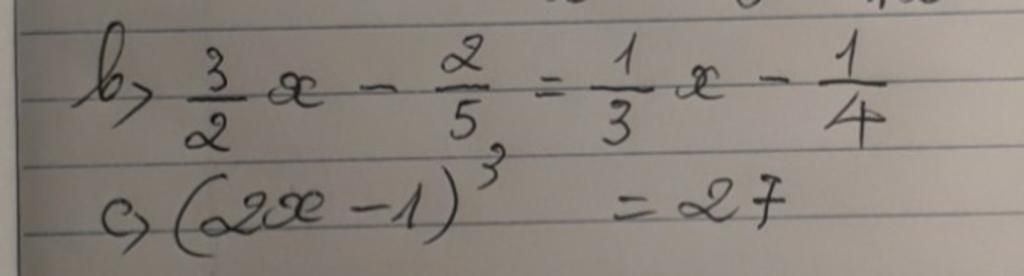 b, 3/2 x - 2/5 = 1/3 x - 1/4
c, (2x - 1)³ = 27